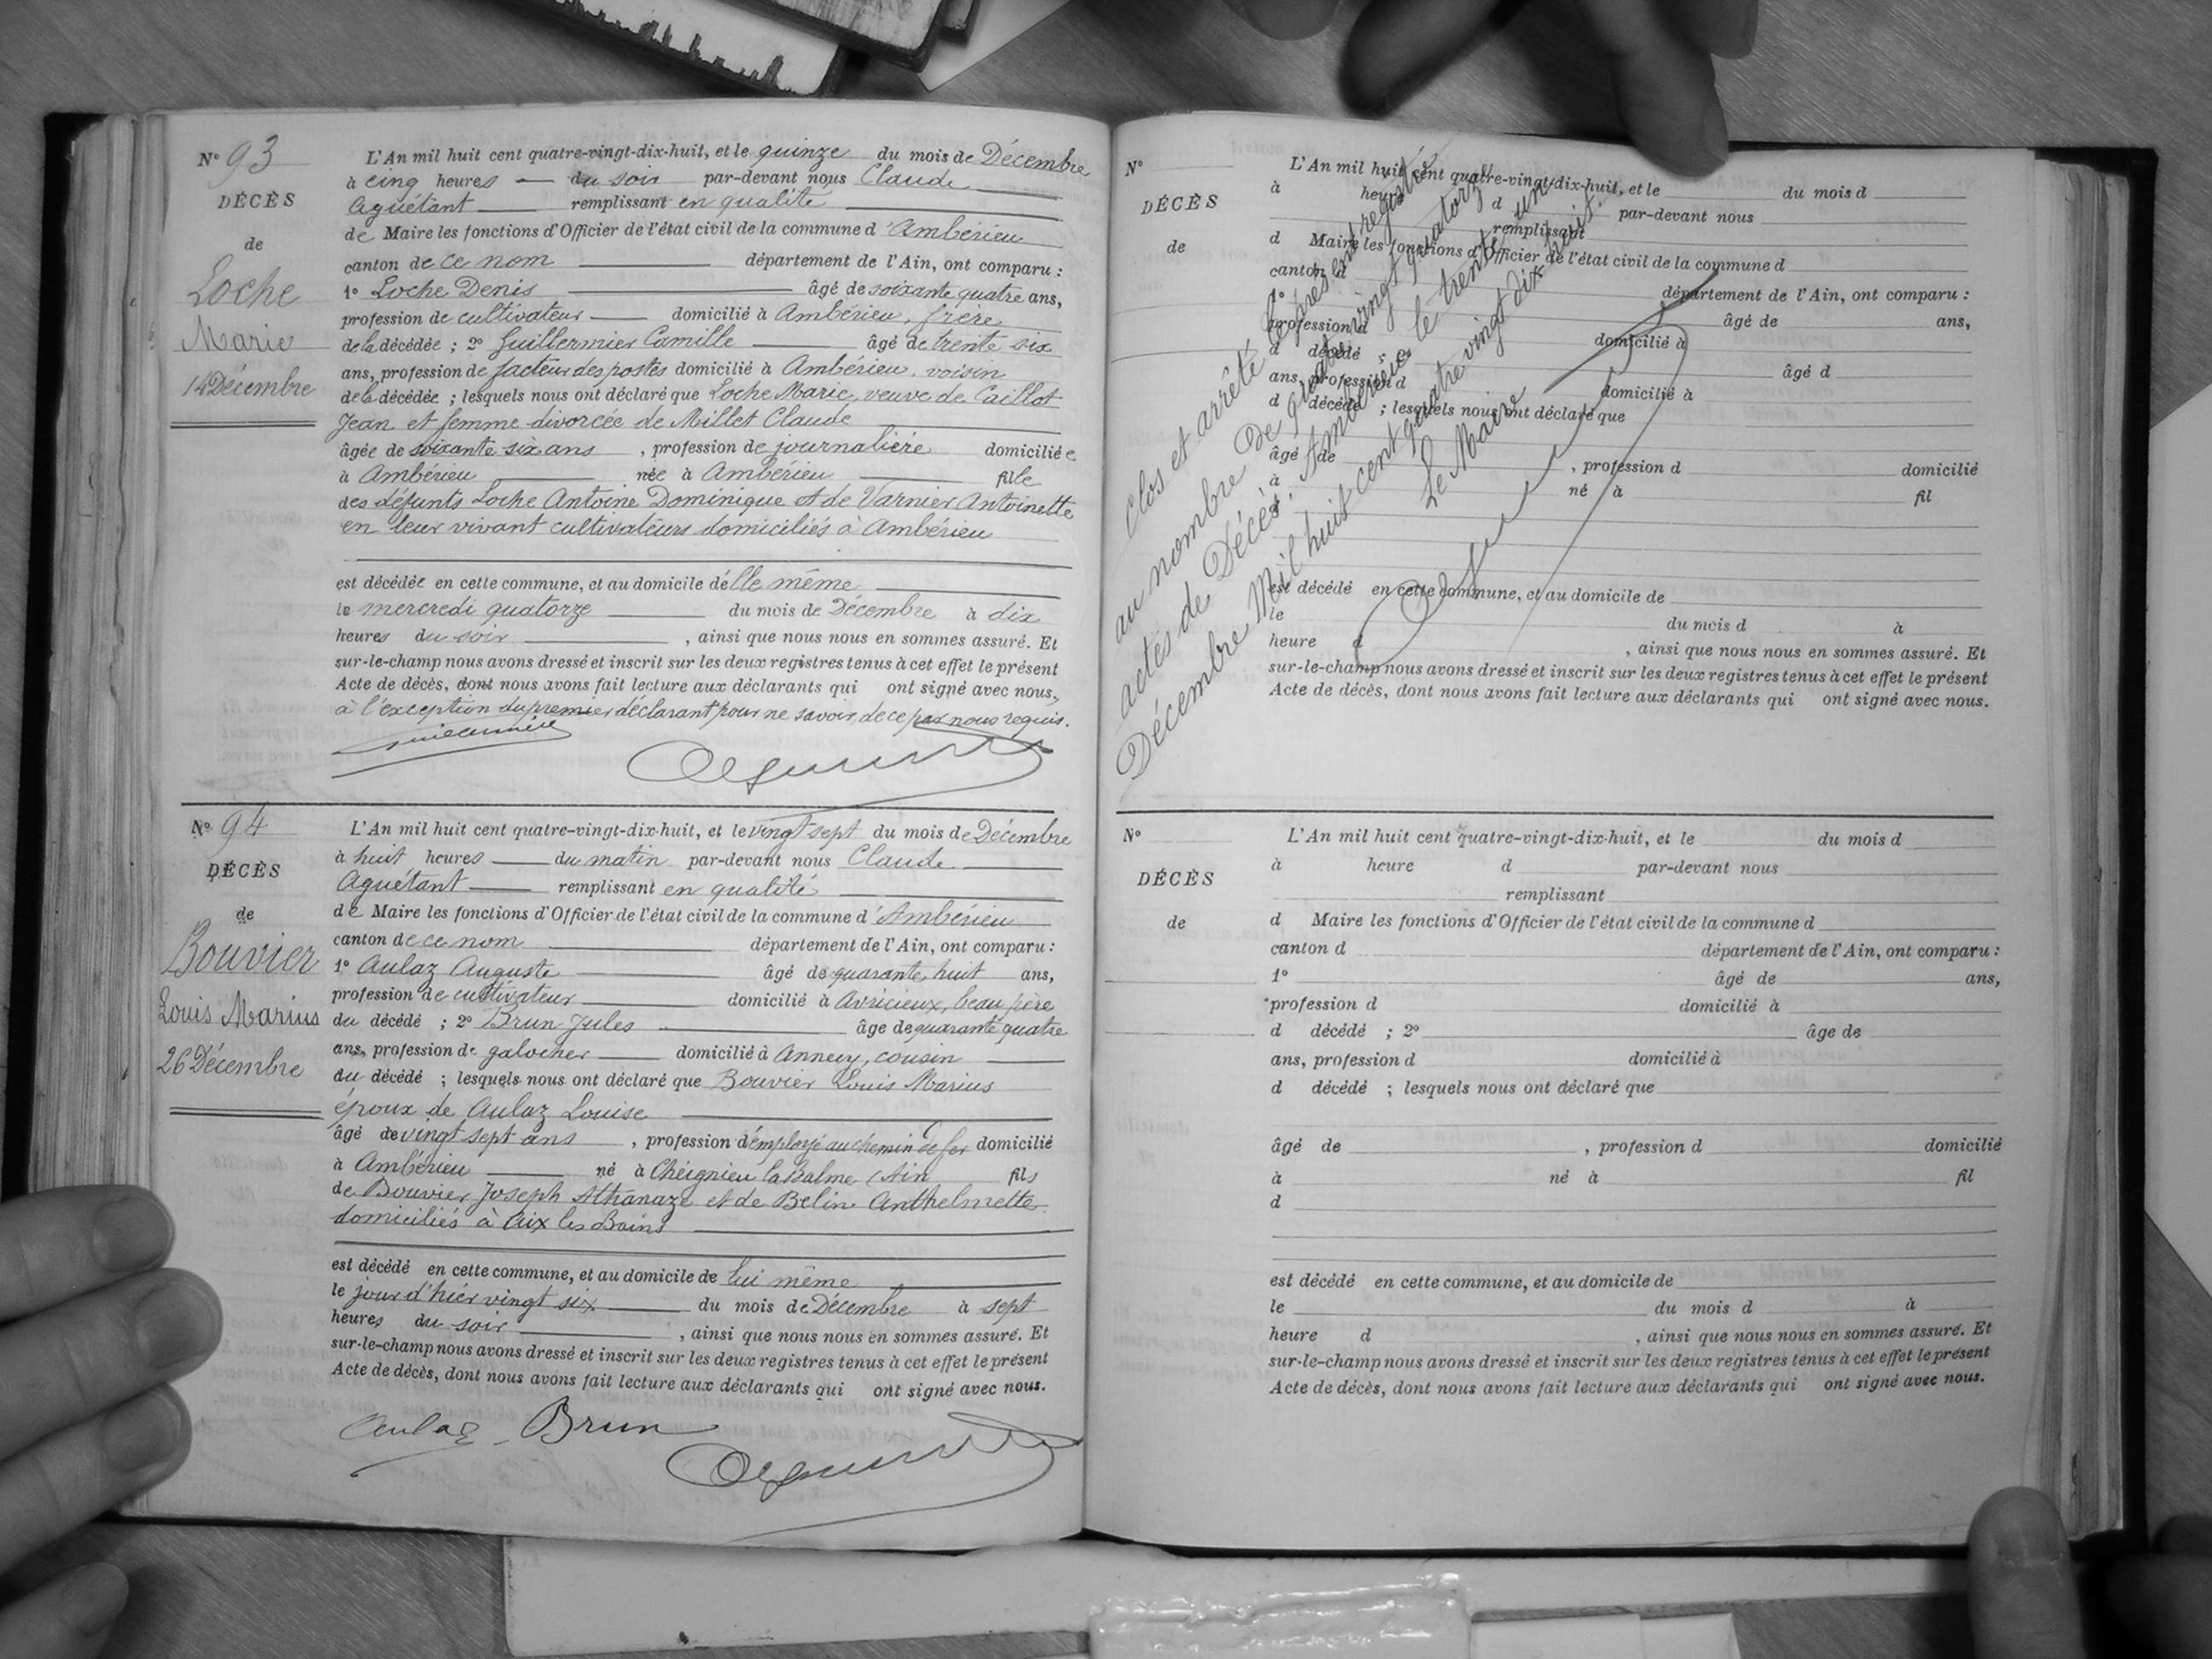 N° 93
DÉCÈS
de
Loche
Marie
14 Décembre
L'An mil huit cent quatre-vingt-dix-huit, et le quinze du mois de Décembre
à cinq heures du soir par-devant nous Claude
Aguétant remplissant en qualité
de Maire les fonctions d'Officier de l'état civil de la commune d'Ambérieu
canton de ce nom département de l'Ain, ont comparu :
1° Loche Denis âgé de soixante quatre ans,
profession de cultivateur domicilié à Ambérieu, frère
de la décédée ; 2° Guillermier Camille âgé de trente six
ans, profession de facteur des postes domicilié à Ambérieu, voisin
de la décédée ; lesquels nous ont déclaré que Loche Marie, veuve de Caillot
Jean et femme divorcée de Millet Claude
âgée de soixante six ans , profession de journalière domiciliée
à Ambérieu née à Ambérieu fille
des défunts Loche Antoine Dominique et de Varnier Antoinette
en leur vivant cultivateurs domiciliés à Ambérieu
est décédée en cette commune, et au domicile d'elle même
le mercredi quatorze du mois de Décembre à dix
heures du soir , ainsi que nous nous en sommes assuré. Et
sur-le-champ nous avons dressé et inscrit sur les deux registres tenus à cet effet le présent
Acte de décès, dont nous avons fait lecture aux déclarants qui ont signé avec nous,
à l'exception du premier déclarant pour ne savoir, de ce par nous requis.
N° 94
DÉCÈS
de
Bouvier
Louis Marius
26 Décembre
L'An mil huit cent quatre-vingt-dix-huit, et le vingt sept du mois de Décembre
à huit heures du matin par-devant nous Claude
Aguétant remplissant en qualité
de Maire les fonctions d'Officier de l'état civil de la commune d'Ambérieu
canton de ce nom département de l'Ain, ont comparu :
1° Aulaz Auguste âgé de quarante huit ans,
profession de cultivateur domicilié à Avricieux, beau père
du décédé ; 2° Brun Jules âge de quarante quatre
ans, profession de galocher domicilié à Annecy, cousin
du décédé ; lesquels nous ont déclaré que Bouvier Louis Marius
époux de Aulaz Louise
âgé de vingt sept ans , profession d'employé au chemin de fer domicilié
à Ambérieu né à Cheignieu la Balme (Ain fils
de Bouvier Joseph Athanaze et de Belin Anthelmette
domiciliés à Aix les Bains
est décédé en cette commune, et au domicile de lui même
le jour d'hier vingt six du mois de Décembre à sept
heures du soir , ainsi que nous nous en sommes assuré. Et
sur-le-champ nous avons dressé et inscrit sur les deux registres tenus à cet effet le présent
Acte de décès, dont nous avons fait lecture aux déclarants qui ont signé avec nous.
Aulaz Brun
N°
DÉCÈS
de
L'An mil huit cent quatre-vingt-dix-huit, et le du mois d
à heure d par-devant nous
remplissant
d Maire les fonctions d'Officier de l'état civil de la commune d
canton d
département de l'Ain, ont comparu :
1° âgé de ans,
profession d domicilié à
d décédé ; 2° âgé d
ans, profession d domicilié à
d décédé ; lesquels nous ont déclaré que
âgé de , profession d domicilié
à né à fil
d
est décédé en cette commune, et au domicile de
le du mois d à
heure d , ainsi que nous nous en sommes assuré. Et
sur-le-champ nous avons dressé et inscrit sur les deux registres tenus à cet effet le présent
Acte de décès, dont nous avons fait lecture aux déclarants qui ont signé avec nous.
Clos et arrêté le présent registre
au nombre de quatre vingt quatorze
actes de Décès. Ambérieu le trente un
Décembre Mil huit cent quatre vingt dix huit.
Le Maire
N°
DÉCÈS
de
L'An mil huit cent quatre-vingt-dix-huit, et le du mois d
à heure d par-devant nous
remplissant
d Maire les fonctions d'Officier de l'état civil de la commune d
canton d département de l'Ain, ont comparu :
1° âgé de ans,
profession d domicilié à
d décédé ; 2° âge de
ans, profession d domicilié à
d décédé ; lesquels nous ont déclaré que
âgé de , profession d domicilié
à né à fil
d
est décédé en cette commune, et au domicile de
le du mois d à
heure d , ainsi que nous nous en sommes assuré. Et
sur-le-champ nous avons dressé et inscrit sur les deux registres tenus à cet effet le présent
Acte de décès, dont nous avons fait lecture aux déclarants qui ont signé avec nous.